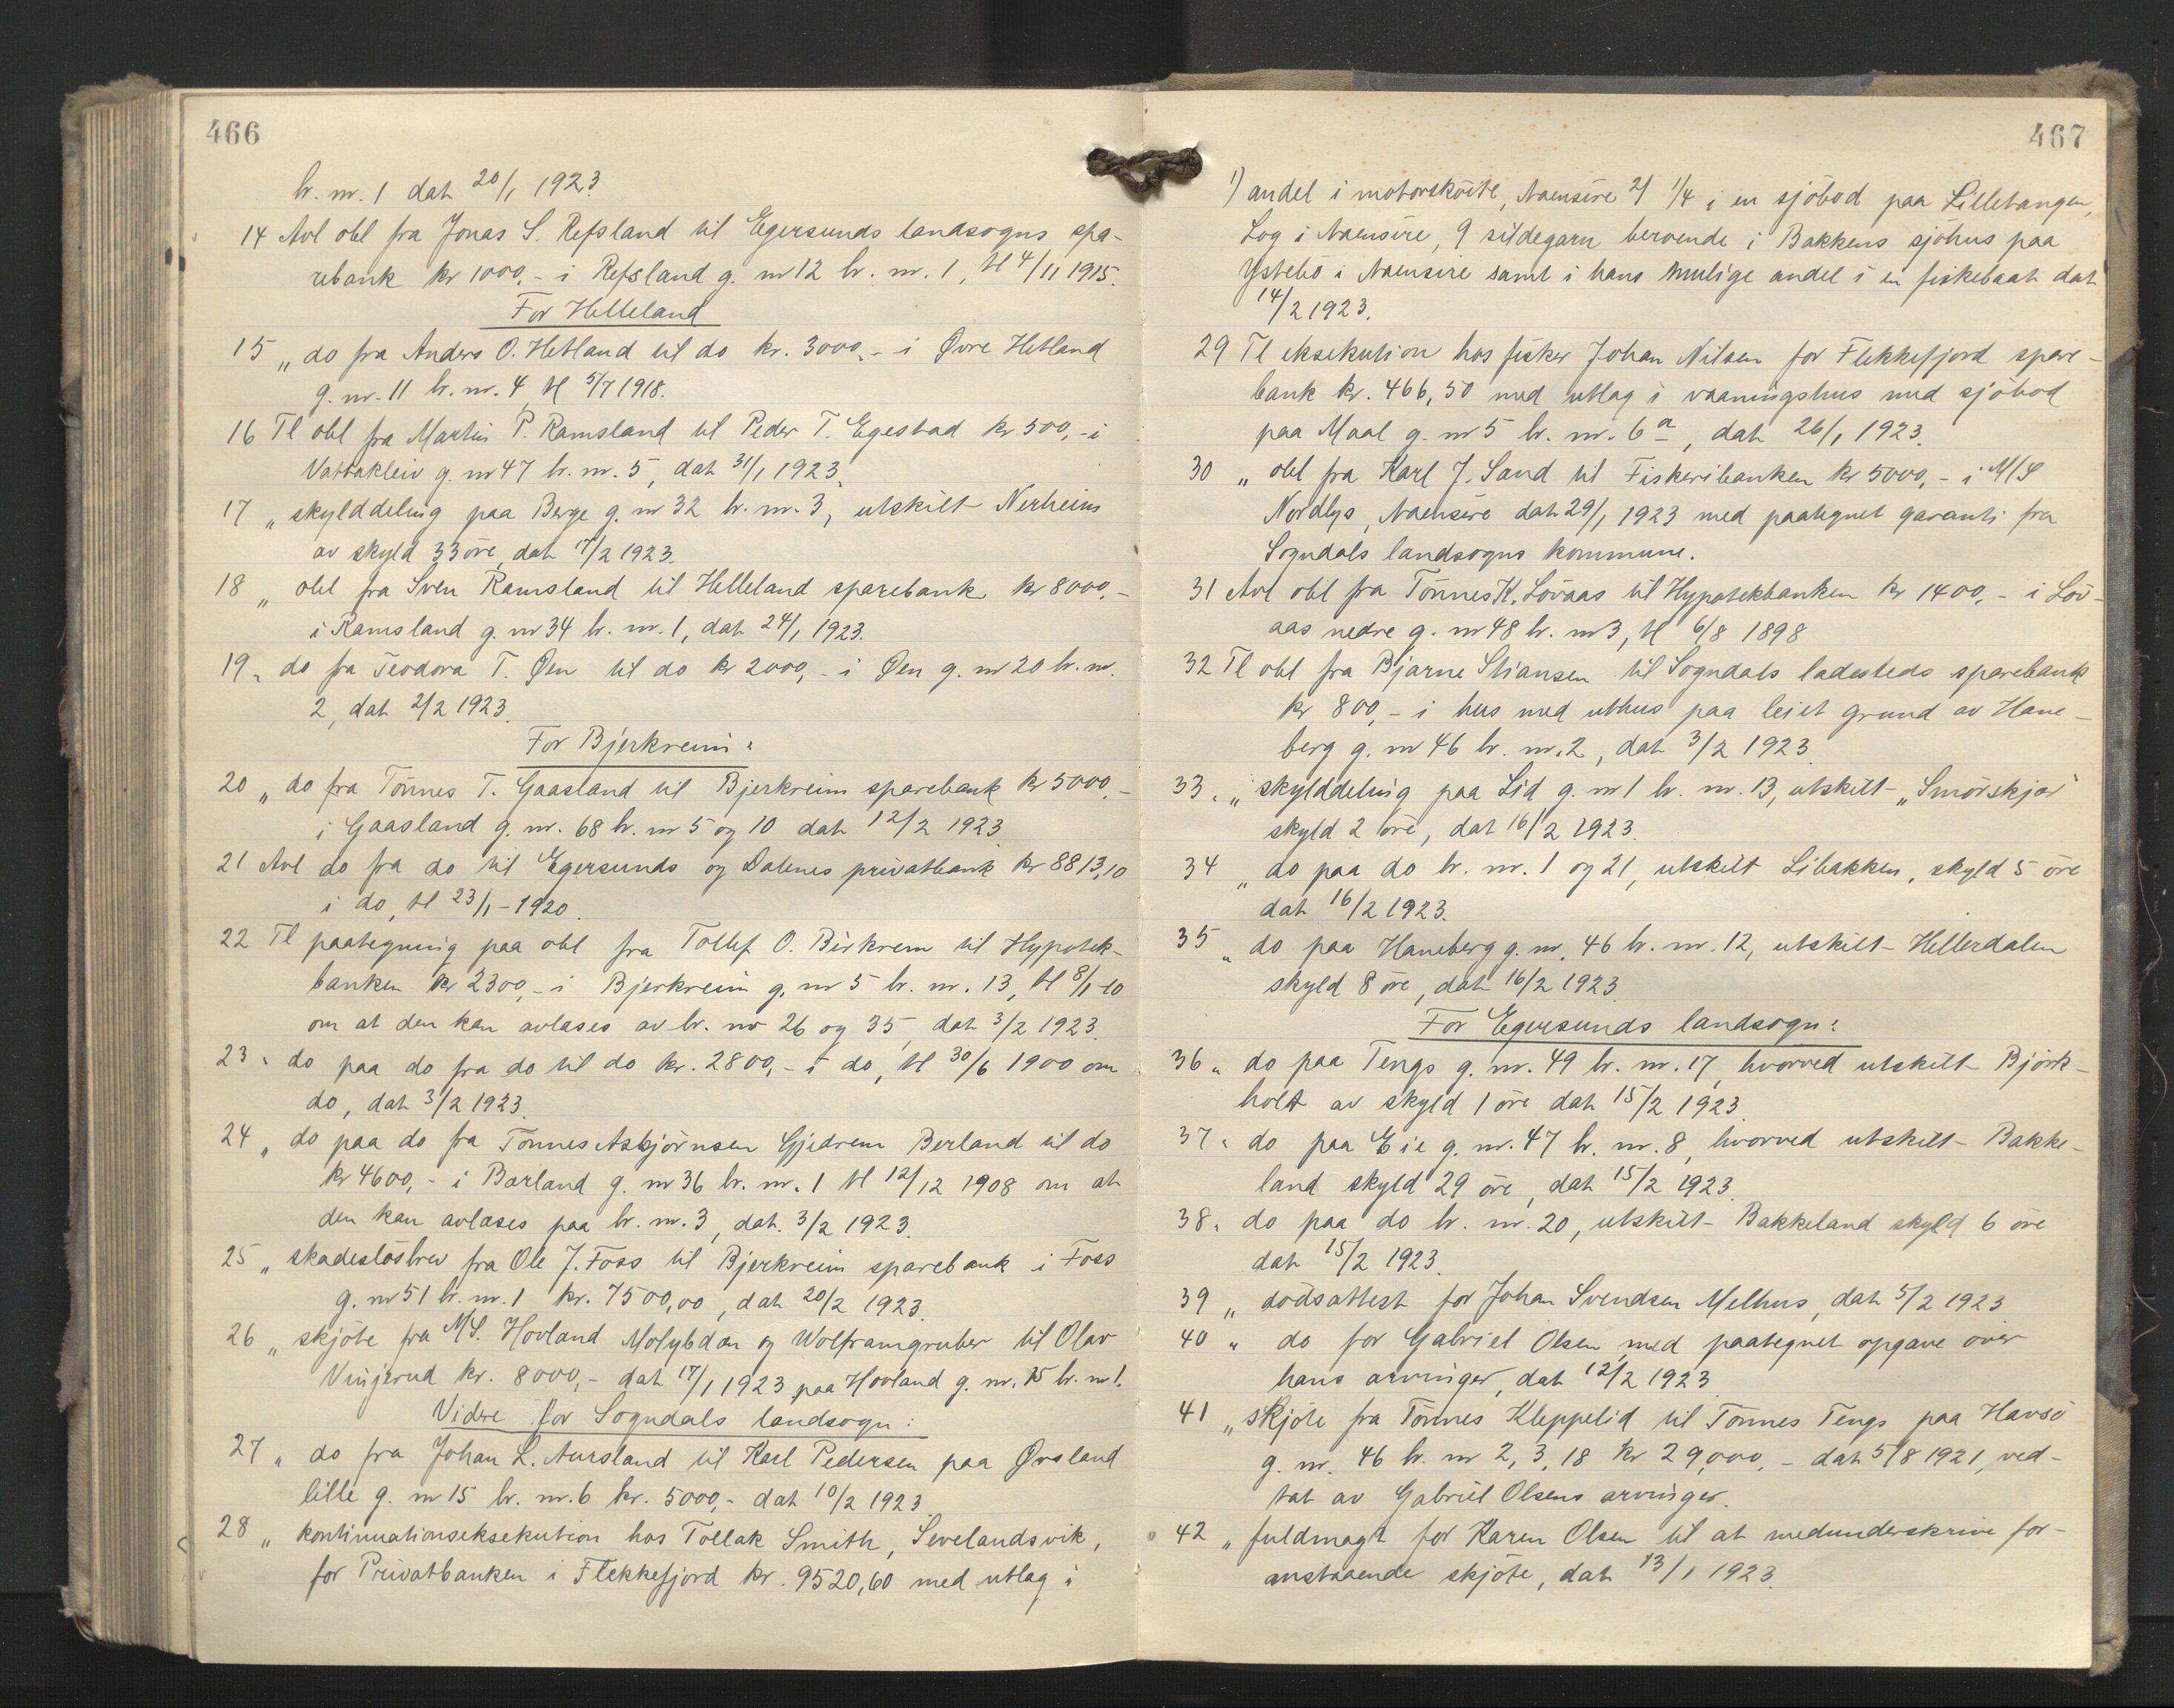 466
br. nr. 1 dat 20/1 1923.
14 Avl obl fra Jonas S. Refsland til Egersunds landsogns spa-
rebank kr 1000,- i Refsland g. nr 12 br. nr. 1, tl 4/11 1915.
For Helleland
15 „ do fra Anders O. Hetland til do kr. 3000,- i Øvre Hetland
g. nr. 11 br. nr. 4, tl 5/7 1918.
16 Tl obl fra Martin P. Ramsland til Peder T. Egestad kr 500,- i
Vattakleiv g. nr 47 br. nr. 5, dat 31/1 1923.
17 „ skylddeling paa Berge g. nr 32 br. nr. 3, utskilt Nerheim
av skyld 33 øre, dat 17/2 1923.
18 „ obl fra Sven Ramsland til Helleland sparebank kr 8000,-
i Ramsland g. nr 34 br. nr. 1, dat 24/1 1923.
19 „ do fra Teodora T. Øen til do kr 2000,- i Øen g. nr 20 br. nr.
2, dat 2/2 1923.
For Bjerkreim:
20 „ do fra Tönnes T. Gaasland til Bjerkreim sparebank kr 5000,-
i Gaasland g. nr. 68 br. nr 5 og 10 dat 12/2 1923
21 Avl do fra do til Egersunds og Dalenes privatbank kr 8813,10
i do, tl 23/1 - 1920.
22 Tl paategning paa obl fra Tollef O. Birkrem til Hypotek-
banken kr 2300,- i Bjerkreim g. nr 5 br. nr. 13, tl 8/1-10
om at den kan avlases av br. nr 26 og 35, dat 3/2 1923.
23 „ do paa do fra do til do kr. 2800,- i do, tl 30/6 1900 om
do, dat 3/2 1923.
24 „ do paa do fra Tönnes Asbjörnsen Gjedrem Berland til do
kr 4600,- i Barland g. nr 36 br. nr. 1 tl 12/12 1908 om at
den kan avlases paa br. nr. 3, dat. 3/2 1923.
25 „ skadeslösbrev fra Ole J. Foss til Bjerkreim sparebank i Foss
g. nr 51 br. nr. 1 kr. 7500,00, dat 20/2 1923.
26 „ skjöte fra M/S. Hovland Molybdæn og Wolframgruber til Olav
Vinjerud kr. 8000,- dat 17/1 1923 paa Hovland g. nr. 15 br. nr 1.
Videre for Sogndals landsogn:
27 „ do fra Johan L. Aursland til Karl Pedersen paa Ørsland
lille g. nr 15 br. nr. 6 kr. 5000,- dat 10/2 1923.
28 „ kontinuationseksekution hos Tollak Smith, Sevelandsvik,
for Privatbanken i Flekkefjord kr. 9520,60 med utlag i
467
1) andel i motorsköite, Naensire 2) 1/4 i en sjöbod paa Lilletangen,
Log i Naensire, 9 sildegarn beroende i Bakkens sjöhus paa
Ystebö i Naensire samt i hans mulige andel i en fiskebaat dat
14/2 1923.
29 Tl eksekution hos fisker Johan Nilsen for Flekkefjord spare-
bank kr. 466,50 med utlag i vaaningshus med sjöbod
paa Maal g. nr 5 br. nr. 6 a, dat 26/1 1923.
30 „ obl fra Karl J. Sand til Fiskeribanken kr 5000,- i M/S
Nordlys, Naensire dat 29/1 1923 med paategnet garanti fra
Sogndals landsogns kommune.
31 Avl obl fra Tönnes K. Lövaas til Hypotekbanken kr 1400,- i Löv-
aas nedre g. nr 48 br. nr 3, tl 6/8 1898
32 Tl obl fra Bjarne Stiansen til Sogndals ladesteds sparebank
kr 800,- i hus med uthus paa leiet grund av Hane-
berg g. nr 46 br. nr. 2, dat 3/2 1923.
33. „ skylddeling paa Lid g. nr 1 br. nr. 13, utskilt „Smörskjær"
skyld 2 öre, dat 16/2 1923.
34 „ do paa do br. nr. 1 og 21, utskilt Libakken, skyld 5 öre
dat 16/2 1923.
35 „ do paa Haneberg g. nr. 46 br. nr. 12, utskilt Hellerdalen
skyld 8 öre, dat 16/2 1923.
For Egersunds landsogn:
36 „ do paa Tengs g. nr. 49 br. nr. 17, hvorved utskilt Björk-
holt av skyld 1 öre dat 15/2 1923.
37 „ do paa Eie g. nr. 47 br. nr. 8, hvorved utskilt Bakke-
land skyld 29 öre, dat 15/2 1923.
38 „ do paa do br. nr. 20, utskilt Bakkeland skyld 6 öre
dat 15/2 1923.
39 „ dödsattest for Johan Svendsen Melhus, dat 5/2 1923
40 „ do for Gabriel Olsen med paategnet opgave over
hans arvinger, dat 12/2 1923
41 „ skjöte fra Tönnes Kleppelid til Tönnes Tengs paa Havsö
g. nr. 46 br. nr 2, 3, 18 kr 29,000,- dat 5/8 1921, ved-
tat av Gabriel Olsens arvinger.
42 „ fuldmagt for Karen Olsen til at medunderskrive for-
anstaaende skjöte, dat 13/1 1923.